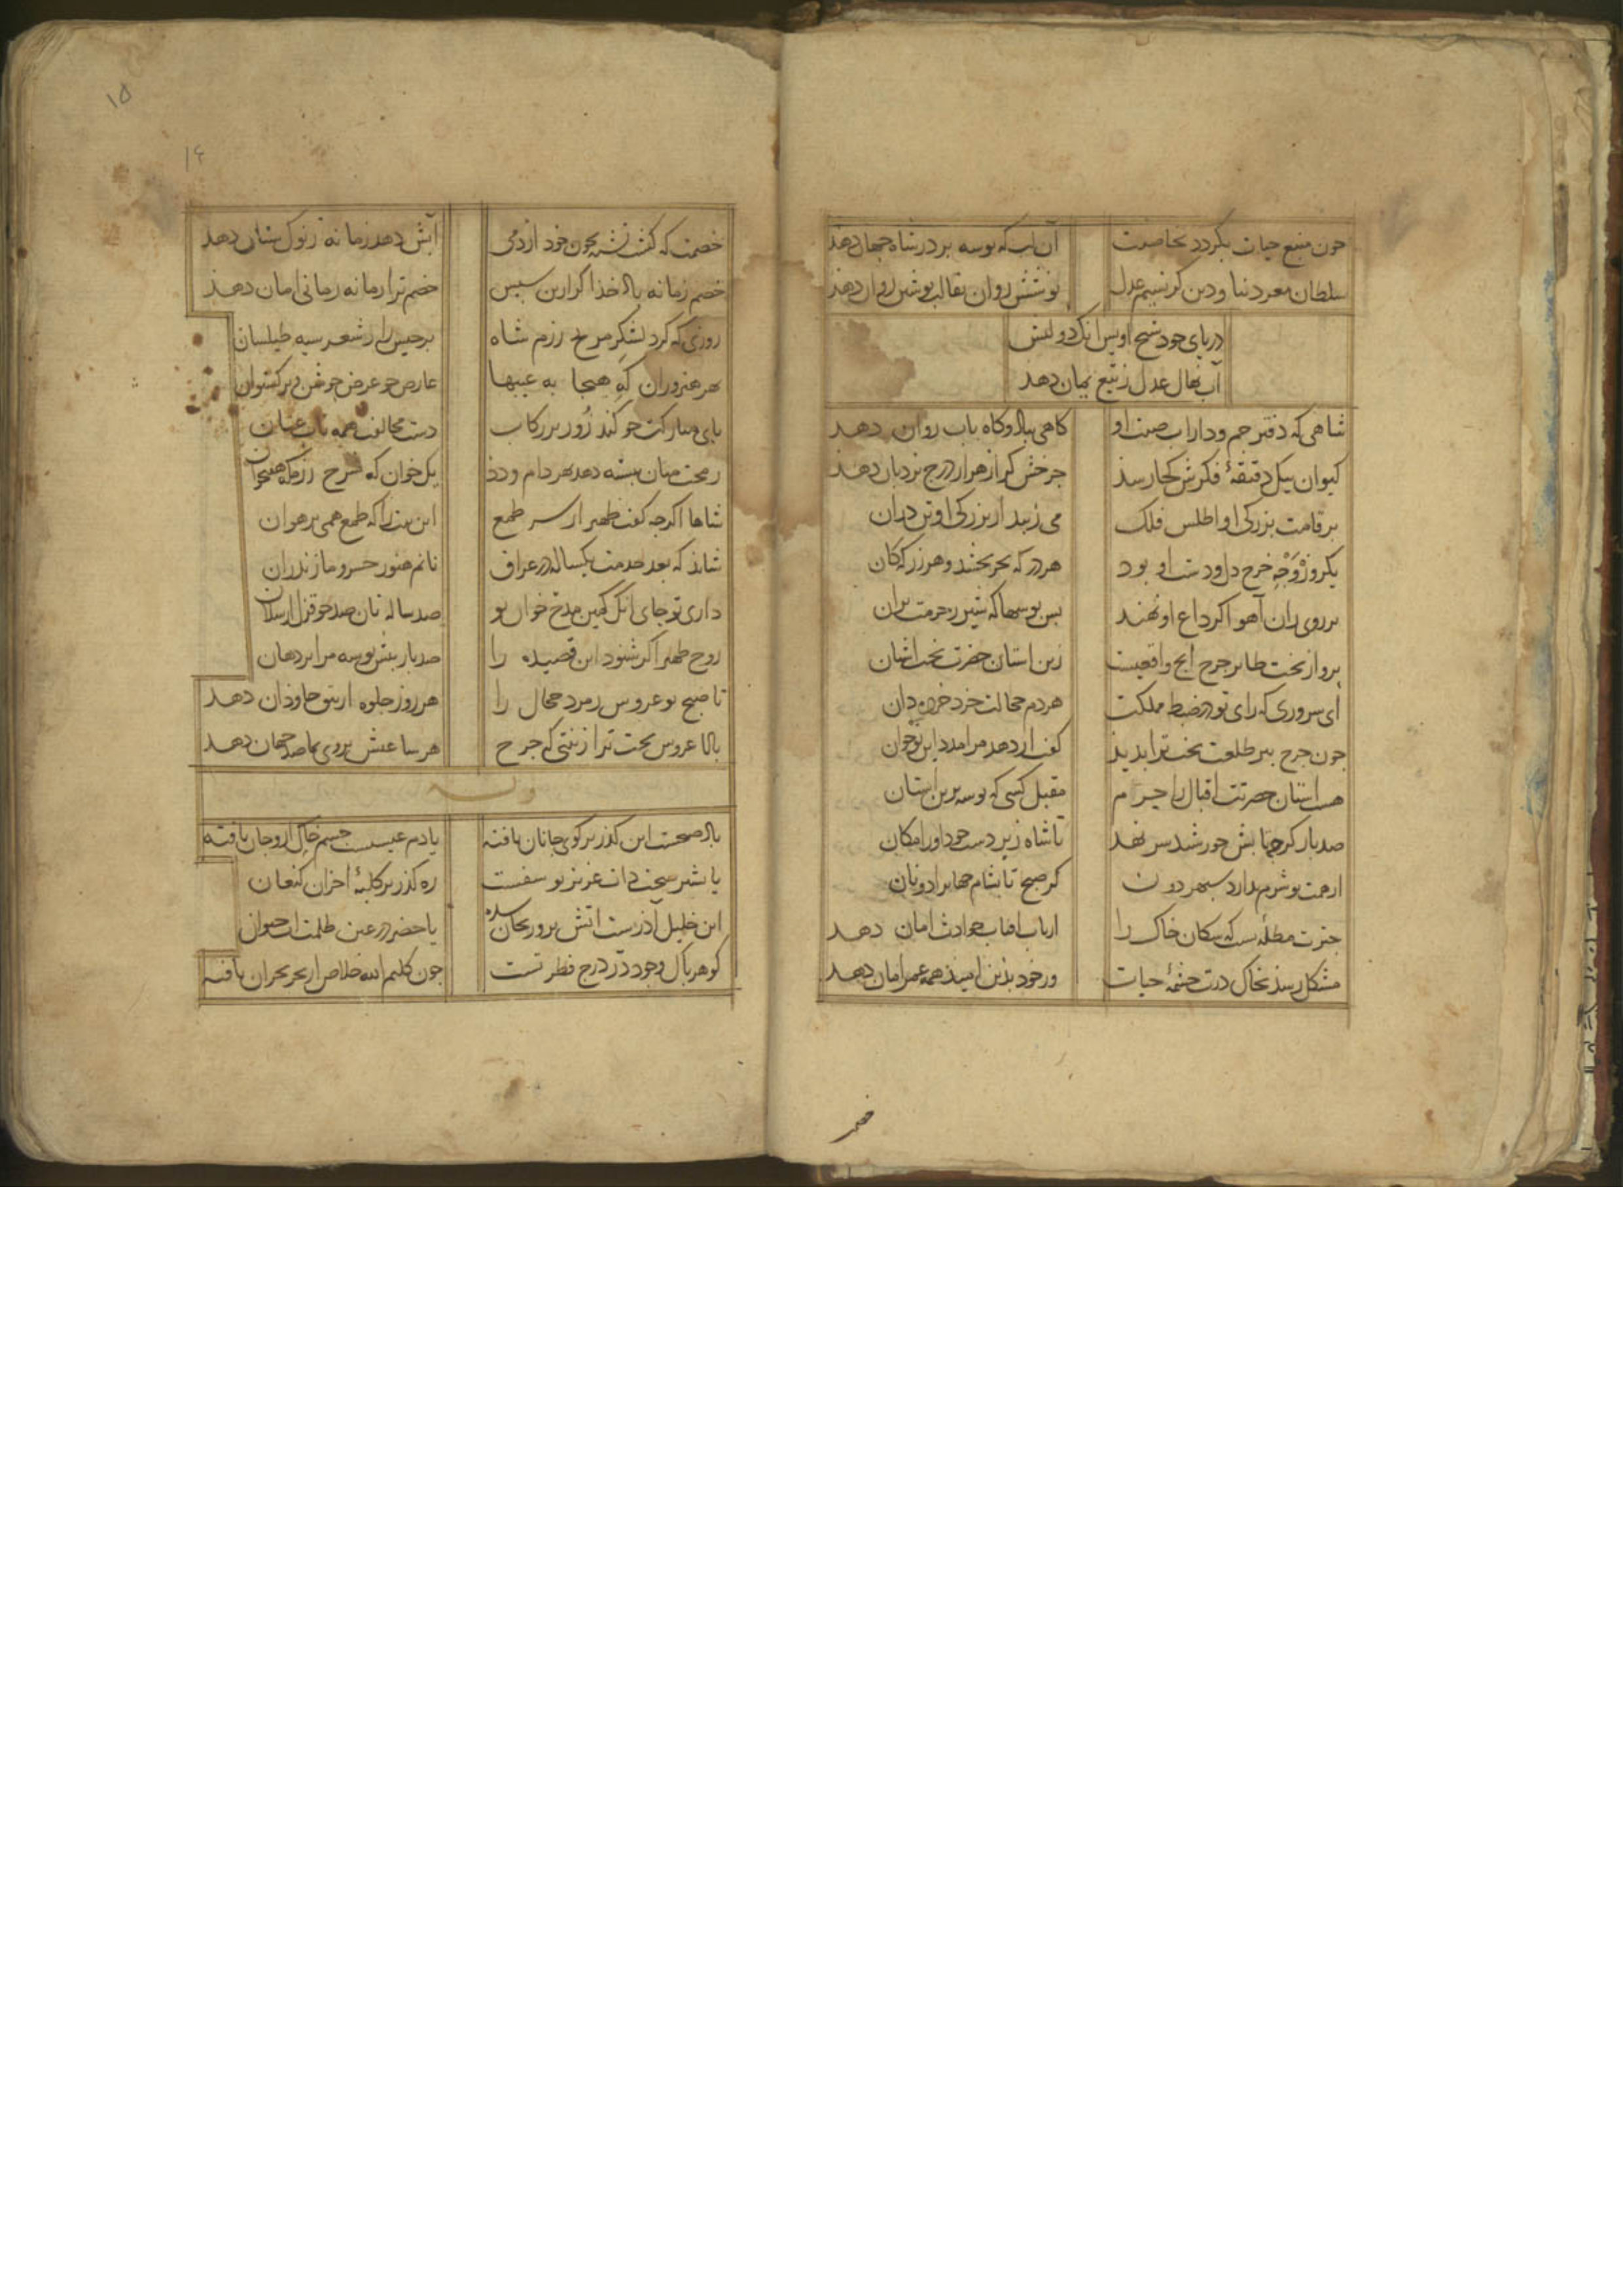 چون منبع حیات بگردد بخاصیت
آن لب که بوسه بر در شاه جهان دهد
سلطان معز دنیا و دین کز نسیم عدل
نوشین روان بقالب نوشین روان دهد
دریای جود شیخ اویس انک دولتش
آب نهال عدل ز تیغ یمان دهد
شاهی که دفتر جم و داراب صیت او
کاهی بباد و کاه باب روان دهد
کیوان بیک دقیقهٔ فکرش کجا رسد
چرخش کر از هزار درج نردبان دهد
بر قامت بزرکی او اطلس فلک
می زیبد از بزرکی او تن دران
یکروزه وجه خرج دل و دست او بود
هر در که بحر بخشد و هر زر که کان
بر روی ران آهو اکر داغ او نهند
بس بوسها که شیر ز حرمت بران
پرواز بخت طایر چرخ
زین استان حضرت بخت اشیان
ای سروری که رای تو در ضبط مملکت
هر دم خجالت خرد خرده دان
چون چرخ پیر طلعت بخت ترا بدید
کفت ار دهد مرا مدد این نوجوان
هست استان حضرتت اقبال را حرم
مقبل کسی که بوسه برین استان
صد بار کرد جنابش خورشید سر نهد
تا شاه زیر دست خود او را مکان
از همت تو شرم ندارد سپهر دون
کز صبح تا بشام جهانرا دو نان
چترت مظله‌یست که سکان خاک را
از تاب افتاب حوادث امان دهد
مشکل رسد بخاک درت چشمهٔ حیات
ور خود بدین امید همه عمر امان دهد
خصمت که کشت تشنه بخون خود از دمی
آبش دهد زمانه ز نوک سنان دهد
خصم زمانه باد خدا کر ازین سپس
خصم ترا زمانه زمانی امان دهد
روزی که کرد لشکر مریخ رزم شاه
برجیس را ز شعر سیه طیلسان
بهر هنروران که هیجا به عیبها
عارض چو عرض جوشن و برکستوان
پای مبارکت چو کند زور بر رکاب
دست مخالفت همه تاب عنان
رمحت میان بسته دهد بهر دام و دد
یک خوان که شرح رزمکه هفتخوان
شاها اکرچه کفت ظهیر از سر طمع
این بیت را که طمع همی بر هوان
شاید که بعد خدمت یکساله در عراق
نانم هنوز خسرو مازندران
داری تو جای انک کهین مدح خوان تو
صد ساله نان صد چو قزل ارسلان
روح ظهیر اکر شنود این قصیده را
صد بار بیش بوسه مرا بر دهان
تا صبح نو عروس زمرد حجال را
هر روز جلوه از تتق خاوران دهد
بادا عروس بخت ترا زینتی که چرخ
هر ساعتش بروی نما صد جهان دهد
وله
باد صبحست این کذر بر کوی جانان یافته
یا دم عیسیست جسم خاک ازو جان یافته
یا بشیر بخت دان عزیز یوسفست
ره کذر بر کلبهٔ احزان کنعان
این خلیل آذرست اتش برو ریحان شده
یا خضر در عین ظلمت اب حیوان
کوهر پاک وجود در درج فطرتست
چون کلیم الله خلاص از بحر بحران یافته
خصم
۱۵
۱۴